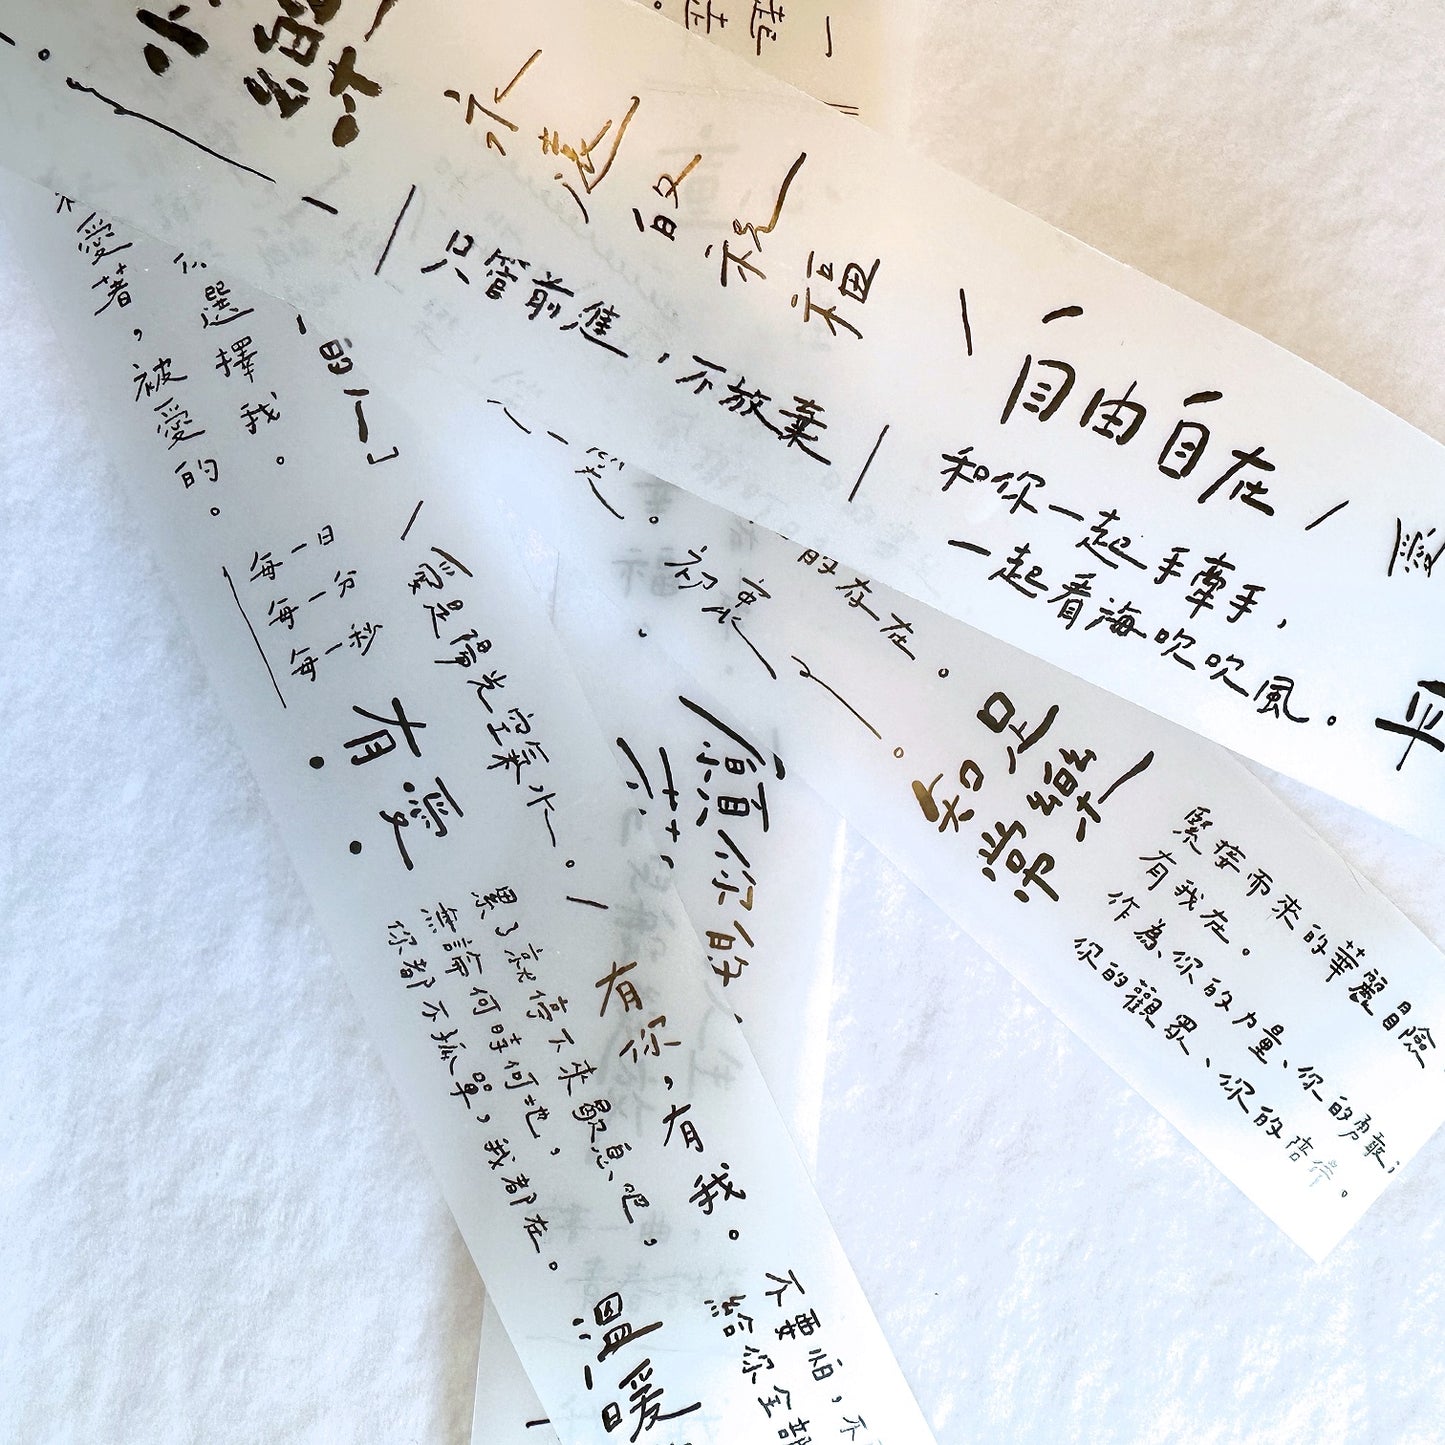 一起
永遠的祝福
只管前進，不放棄
自由自在
和你一起手牽手，
一起看海吹吹風。
平
愛著，被愛的。
選擇我。
的人」
每一日
每一分
每一秒
有愛
愛是陽光空氣水。
累了就停下來歇息吧，
無論何時何地，
你都不孤單，我都在。
有你，有我。
溫暖
不要怕，不
給你全部
一笑。
初衷
願你的
的存在。
知足常樂
緊接而來的華麗冒險
有我在。
作為你的力量、你的勇敢，
你的觀眾、你的陪伴。